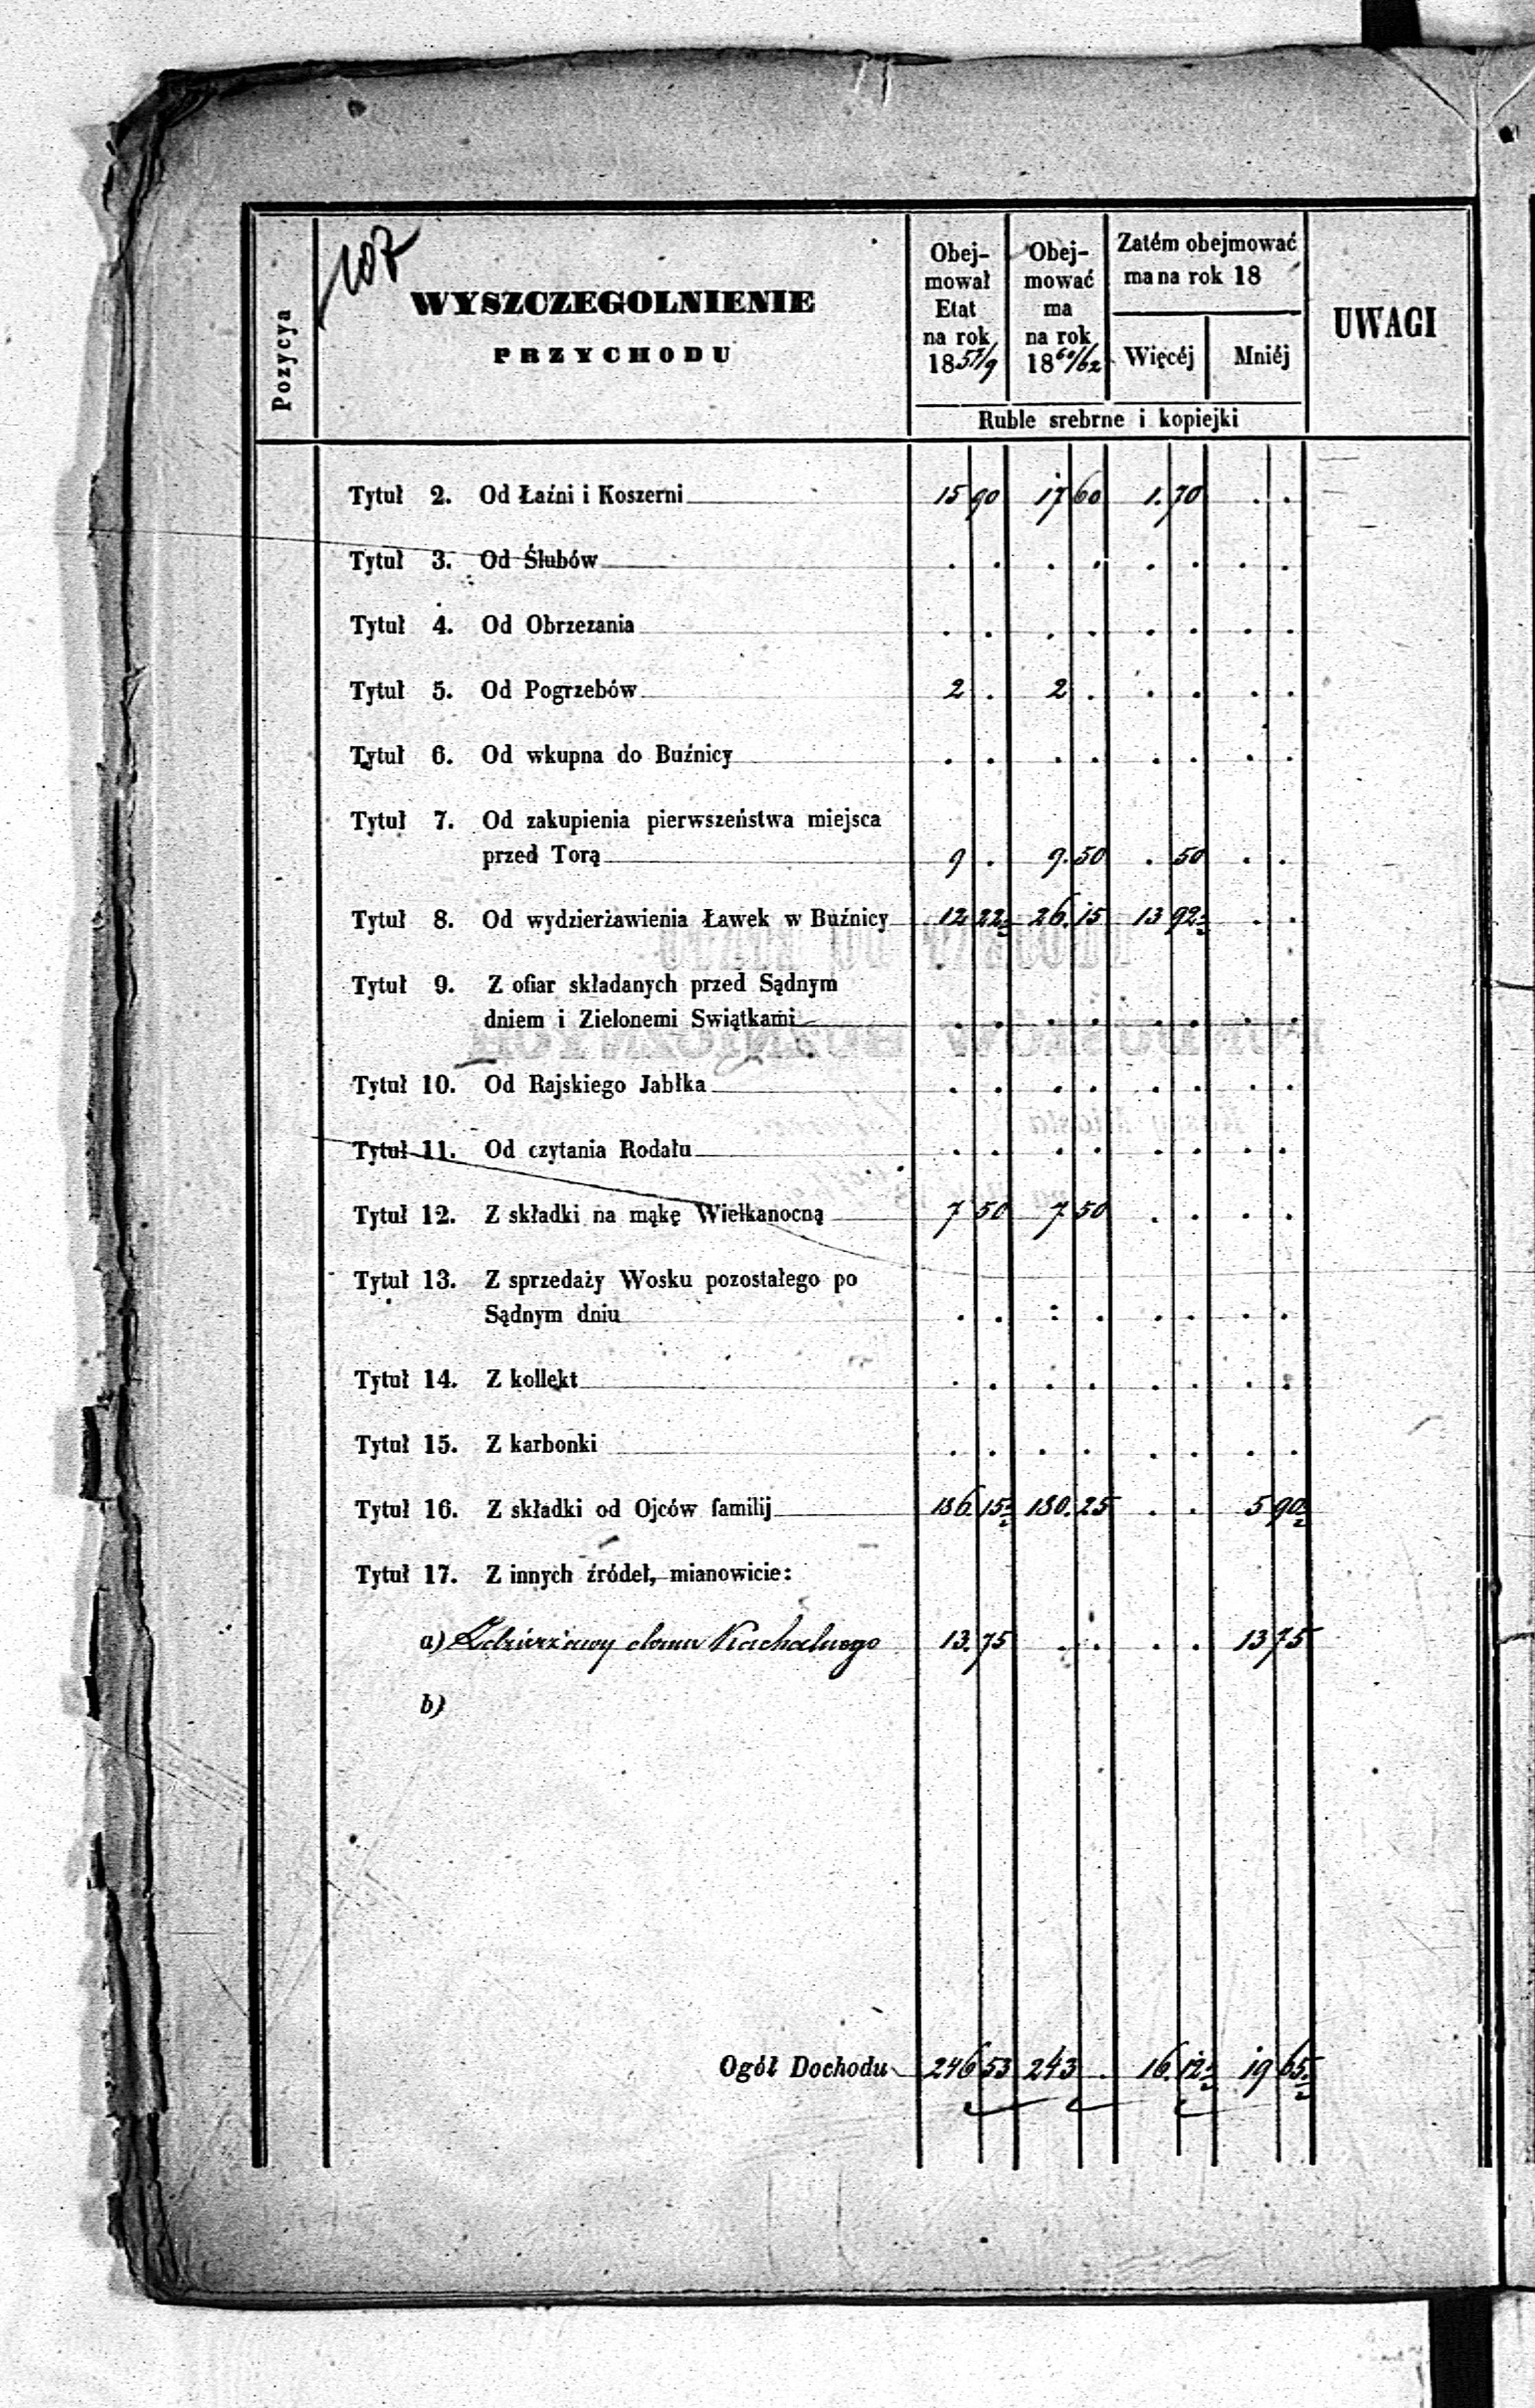 107
Pozycya
WYSZCZEGOLNIENIE
PRZYCHODU
Obej-
mował
Etat
na rok
18 57/9
Obej-
mować
ma
na rok
18 60/62
Zatém obejmować
ma na rok 18
Więcéj Mniéj
Ruble srebrne i kopiejki
UWAGI
Tytuł 2. Od Łaźni i Koszerni 15 90 17 60 1. 70 . .
Tytuł 3. Od Ślubów . . . . . . . .
Tytuł 4. Od Obrzezania . . . . . . . .
Tytuł 5. Od Pogrzebów 2 . 2 . . . . .
Tytuł 6. Od wkupna do Buźnicy . . . . . . . .
Tytuł 7. Od zakupienia pierwszeństwa miejsca
przed Torą 9 . 9. 50 . 50 . .
Tytuł 8. Od wydzierżawienia Ławek w Buźnicy 12 22½ 26. 15 13 92½ . .
Tytuł 9. Z ofiar składanych przed Sądnym
dniem i Zielonemi Swiątkami . . . . . . . .
Tytuł 10. Od Rajskiego Jabłka . . . . . . . .
Tytuł 11. Od czytania Rodału . . . . . . . .
Tytuł 12. Z składki na mąkę Wielkanocną 7 50 7. 50 . . . .
Tytuł 13. Z sprzedaży Wosku pozostałego po
Sądnym dniu . . : . . . . .
Tytuł 14. Z kollekt . . . . . . . .
Tytuł 15. Z karbonki . . . . . . . .
Tytuł 16. Z składki od Ojców familij 186. 15½ 180. 25 . . 5 90½
Tytuł 17. Z innych źródeł, mianowicie:
a) Z dzierżawy domu Kachalnego 13. 75 . . . . 13 75
b)
Ogół Dochodu 246 53 243 . 16. 12½ 19 65½